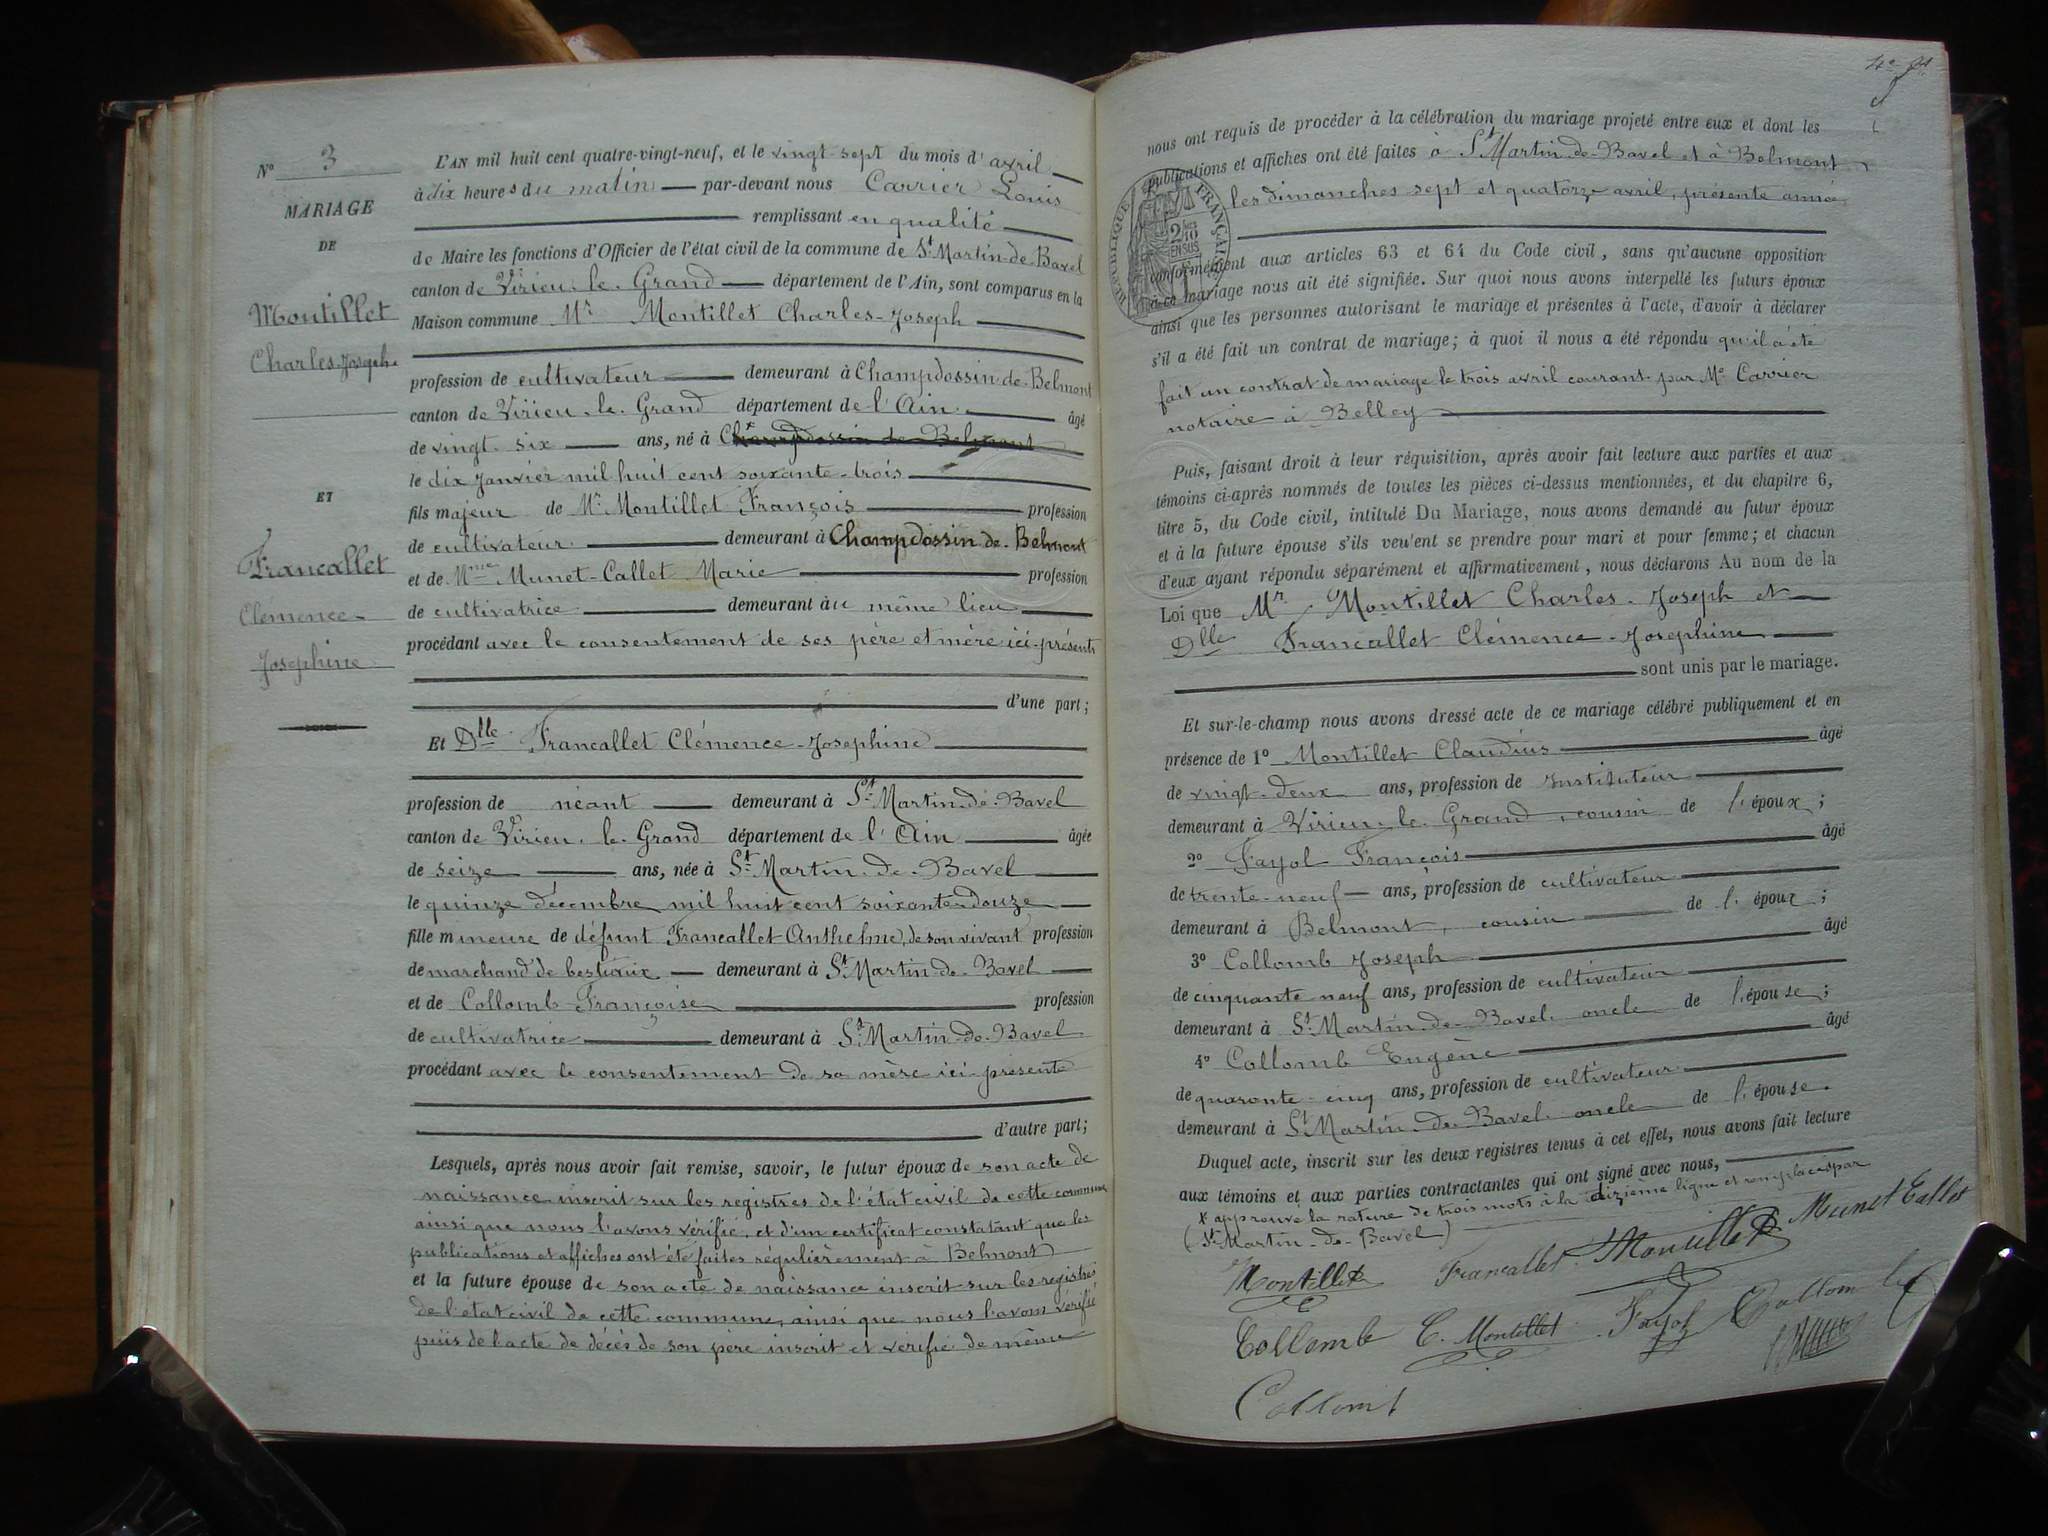 N° 3
MARIAGE
DE
Montillet
Charles-Joseph
ET
Francallet
Clémence-
Josephine
L'AN mil huit cent quatre-vingt-neuf, et le vingt-sept du mois d'avril
à dix heures du matin par-devant nous Carrier Louis
remplissant en qualité
de Maire les fonctions d'Officier de l'état civil de la commune de St Martin-de-Bavel
canton de Virieu-le-Grand département de l'Ain, sont comparus en la
Maison commune Mr Montillet Charles-Joseph
profession de cultivateur demeurant à Champdossin-de-Belmont
canton de Virieu-le-Grand département de l'Ain âgé
de vingt-six ans, né à Champdossin de Belmont
le dix janvier mil huit cent soixante-trois
fils majeur de Mr Montillet François profession
de cultivateur demeurant à Champdossin-de-Belmont
et de Mme Munet-Callet Marie profession
de cultivatrice demeurant au même lieu
procédant avec le consentement de ses père et mère ici présents
d'une part;
Et Dlle Francallet Clémence-Josephine
profession de néant demeurant à St Martin-de-Bavel
canton de Virieu-le-Grand département de l'Ain âgée
de seize ans, née à St Martin-de-Bavel
le quinze décembre mil huit cent soixante-douze
fille mineure de défunt Francallet Anthelme, de son vivant profession
de marchand de bestiaux demeurant à St Martin-de-Bavel
et de Collomb Françoise profession
de cultivatrice demeurant à St Martin-de-Bavel
procédant avec le consentement de sa mère ici présente
d'autre part;
Lesquels, après nous avoir fait remise, savoir, le futur époux de son acte de
naissance inscrit sur les registres de l'état civil de cette commune
ainsi que nous l'avons vérifié, et d'un certificat constatant que les
publications et affiches ont été faites régulièrement à Belmont
et la future épouse de son acte de naissance inscrit sur les registres
de l'état civil de cette commune, ainsi que nous l'avons vérifié
puis de l'acte de décès de son père inscrit et vérifié de même
nous ont requis de procéder à la célébration du mariage projeté entre eux et dont les
publications et affiches ont été faites à St Martin-de-Bavel et à Belmont
les dimanches sept et quatorze avril, présente année
RÉPUBLIQUE FRANÇAISE
2/10
EN SUS
conformément aux articles 63 et 64 du Code civil, sans qu'aucune opposition
à ce mariage nous ait été signifiée. Sur quoi nous avons interpellé les futurs époux
ainsi que les personnes autorisant le mariage et présentes à l'acte, d'avoir à déclarer
s'il a été fait un contrat de mariage; à quoi il nous a été répondu qu'il a été
fait un contrat de mariage le trois avril courant par Me Carrier
notaire à Belley
Puis, faisant droit à leur réquisition, après avoir fait lecture aux parties et aux
témoins ci-après nommés de toutes les pièces ci-dessus mentionnées, et du chapitre 6,
titre 5, du Code civil, intitulé Du Mariage, nous avons demandé au futur époux
et à la future épouse s'ils veulent se prendre pour mari et pour femme; et chacun
d'eux ayant répondu séparément et affirmativement, nous déclarons Au nom de la
Loi que Mr Montillet Charles-Joseph et
Dlle Francallet Clémence-Josephine
sont unis par le mariage.
Et sur-le-champ nous avons dressé acte de ce mariage célébré publiquement et en
présence de 1° Montillet Claudius âgé
de vingt-deux ans, profession de Instituteur
demeurant à Virieu-le-Grand, cousin de l'époux;
2° Fayol François âgé
de trente-neuf ans, profession de cultivateur
demeurant à Belmont, cousin de l'époux;
3° Collomb Joseph âgé
de cinquante neuf ans, profession de cultivateur
demeurant à St Martin-de-Bavel oncle de l'épouse;
4° Collomb Eugène âgé
de quarante-cinq ans, profession de cultivateur
demeurant à St Martin-de-Bavel oncle de l'épouse.
Duquel acte, inscrit sur les deux registres tenus à cet effet, nous avons fait lecture
aux témoins et aux parties contractantes qui ont signé avec nous,
x approuvé la rature de trois mots à la dizième ligne et remplacés par
(St Martin-de-Bavel)
Montillet Francallet Montillet Munet Callet
Collomb C. Montillet Fayol Collomb
Collomb